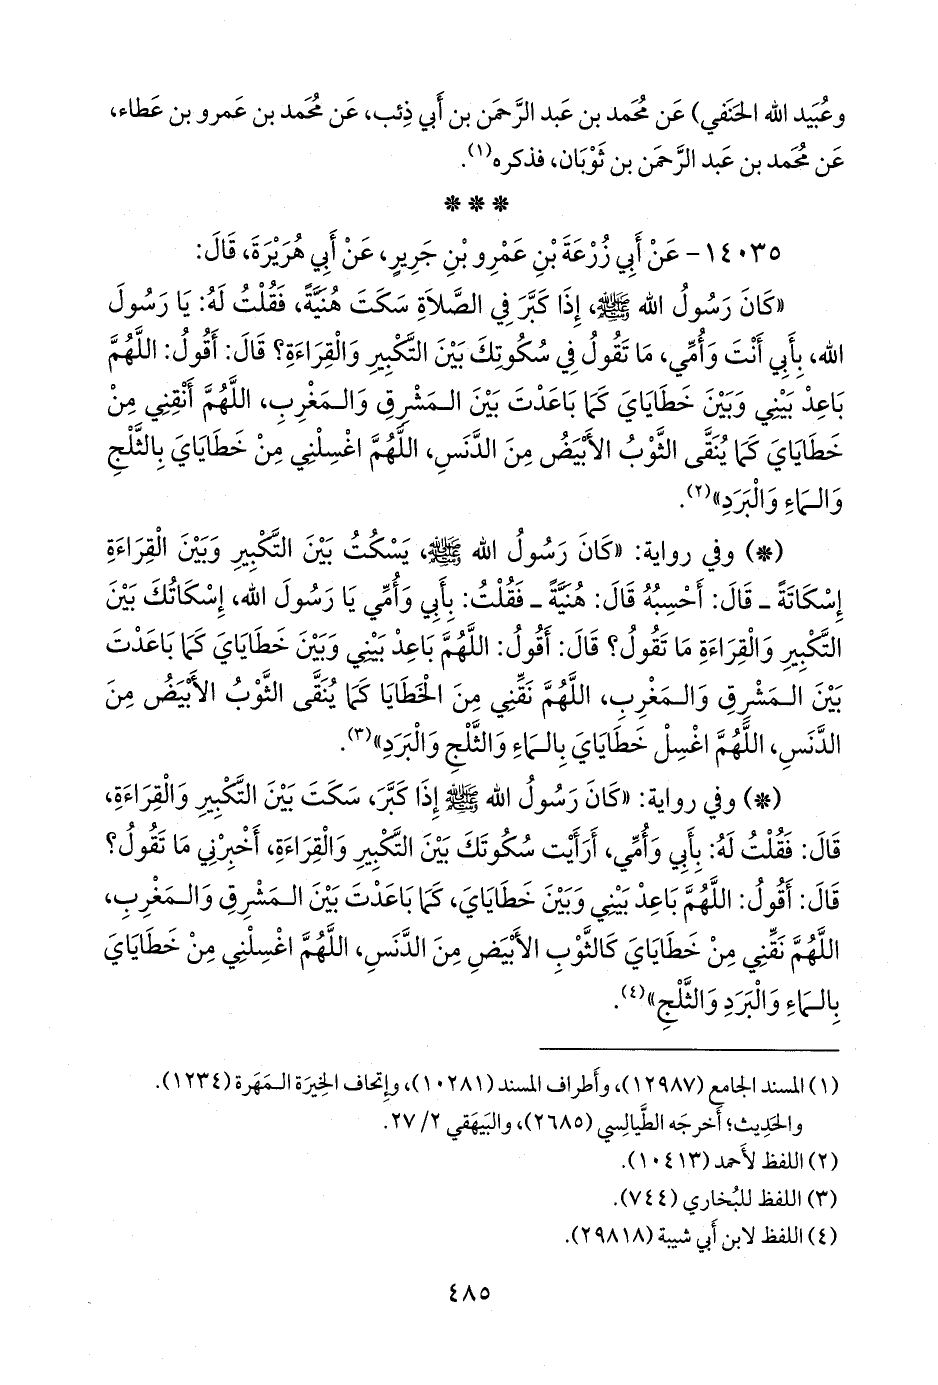 وعُبَيد الله الحَنَفي) عَن مُحمد بن عَبد الرَّحمَن بن أَبي ذِئب، عَن مُحمد بن عَمرو بن عَطاء،
عَن مُحمد بن عَبد الرَّحمَن بن ثَوْبَان، فذكره(١).
* * *
١٤٠٣٥- عَنْ أَبِي زُرْعَةَ بْنِ عَمْرِو بْنِ جَرِيرٍ، عَنْ أَبِي هُرَيْرَةَ، قَالَ:
«كَانَ رَسُولُ الله ﷺ، إِذَا كَبَّرَ فِي الصَّلاَةِ سَكَتَ هُنَيَّةً، فَقُلْتُ لَهُ: يَا رَسُولَ
الله، بِأَبِي أَنْتَ وَأُمِّي، مَا تَقُولُ فِي سُكُوتِكَ بَيْنَ التَّكْبِيرِ وَالْقِرَاءَةِ؟ قَالَ: أَقُولُ: اللَّهُمَّ
بَاعِدْ بَيْنِي وَبَيْنَ خَطَايَايَ كَمَا بَاعَدْتَ بَيْنَ الـمَشْرِقِ وَالـمَغْرِبِ، اللَّهُمَّ أَنْقِنِي مِنْ
خَطَايَايَ كَمَا يُنَقَّى الثَّوْبُ الأَبْيَضُ مِنَ الدَّنَسِ، اللَّهُمَّ اغْسِلْنِي مِنْ خَطَايَايَ بِالثَّلْجِ
وَالـمَاءِ وَالْبَرَدِ»(٢).
(*) وفي رواية: «كَانَ رَسُولُ الله ﷺ، يَسْكُتُ بَيْنَ التَّكْبِيرِ وَبَيْنَ الْقِرَاءَةِ
إِسْكَاتَةً ـ قَالَ: أَحْسِبُهُ قَالَ: هُنَيَّةً ـ فَقُلْتُ: بِأَبِي وَأُمِّي يَا رَسُولَ الله، إِسْكَاتُكَ بَيْنَ
التَّكْبِيرِ وَالْقِرَاءَةِ مَا تَقُولُ؟ قَالَ: أَقُولُ: اللَّهُمَّ بَاعِدْ بَيْنِي وَبَيْنَ خَطَايَايَ كَمَا بَاعَدْتَ
بَيْنَ الـمَشْرِقِ وَالـمَغْرِبِ، اللَّهُمَّ نَقِّنِي مِنَ الْخَطَايَا كَمَا يُنَقَّى الثَّوْبُ الأَبْيَضُ مِنَ
الدَّنَسِ، اللَّهُمَّ اغْسِلْ خَطَايَايَ بِالـمَاءِ وَالثَّلْجِ وَالْبَرَدِ»(٣).
(*) وفي رواية: «كَانَ رَسُولُ الله ﷺ إِذَا كَبَّرَ، سَكَتَ بَيْنَ التَّكْبِيرِ وَالْقِرَاءَةِ،
قَالَ: فَقُلْتُ لَهُ: بِأَبِي وَأُمِّي، أَرَأَيْتَ سُكُوتَكَ بَيْنَ التَّكْبِيرِ وَالْقِرَاءَةِ، أَخْبِرْنِي مَا تَقُولُ؟
قَالَ: أَقُولُ: اللَّهُمَّ بَاعِدْ بَيْنِي وَبَيْنَ خَطَايَايَ، كَمَا بَاعَدْتَ بَيْنَ الـمَشْرِقِ وَالـمَغْرِبِ،
اللَّهُمَّ نَقِّنِي مِنْ خَطَايَايَ كَالثَّوْبِ الأَبْيَضِ مِنَ الدَّنَسِ، اللَّهُمَّ اغْسِلْنِي مِنْ خَطَايَايَ
بِالـمَاءِ وَالْبَرَدِ وَالثَّلْجِ»(٤).
(١) المسند الجامع (١٢٩٨٧)، وأَطراف المسند (١٠٢٨١)، وإِتحاف الخِيرَة الـمَهَرة (١٢٣٤).
والحَدِيث؛ أَخرجَه الطَّيالِسي (٢٦٨٥)، والبَيهَقي ٢/ ٢٧.
(٢) اللفظ لأَحمد (١٠٤١٣).
(٣) اللفظ للبُخاري (٧٤٤).
(٤) اللفظ لابن أَبي شيبة (٢٩٨١٨).
٤٨٥